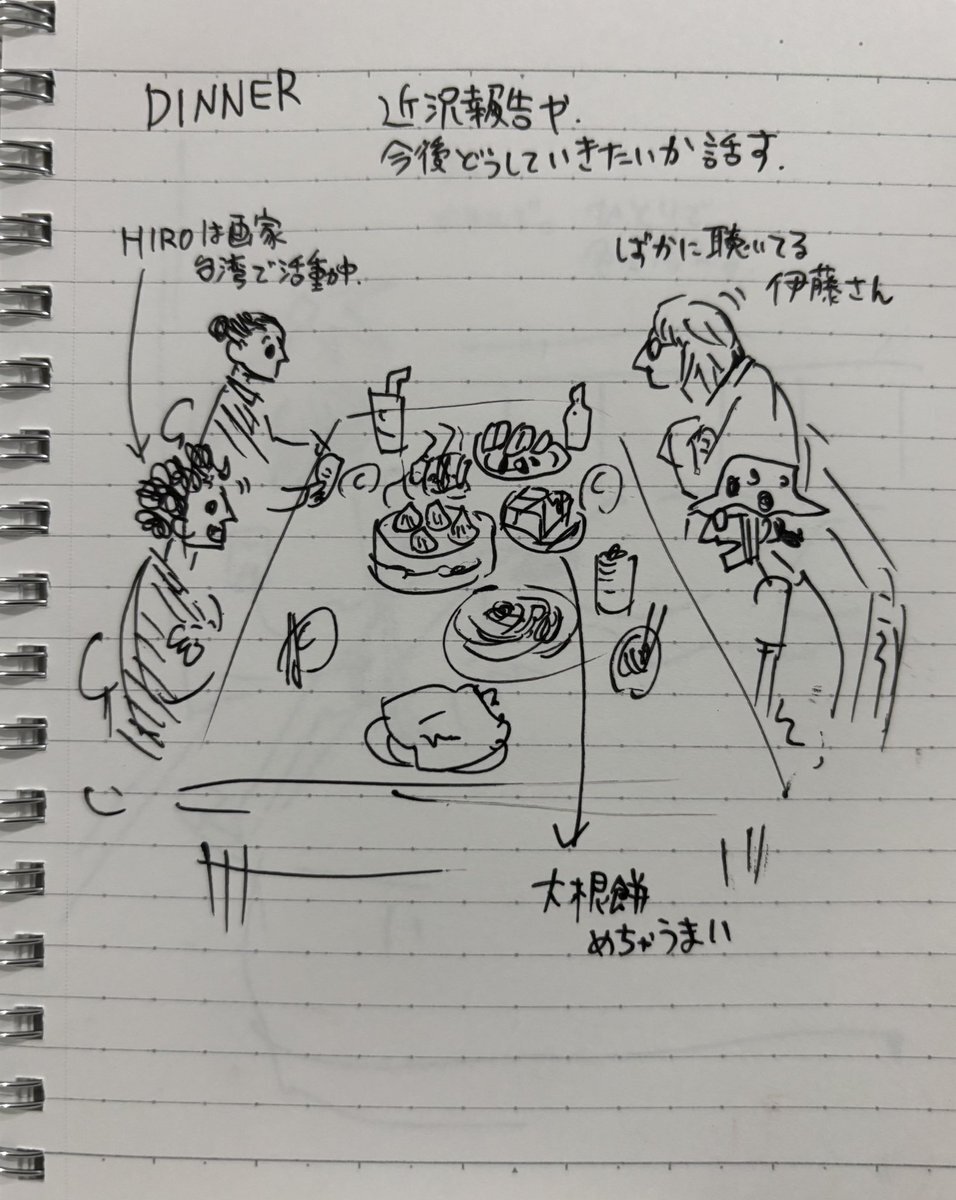 DINNER
近況報告や.
今後どうしていきたいか話す.
HIROは画家
台湾で活動中.
ばかに聴いてる
伊藤さん
大根餅
めちゃうまい